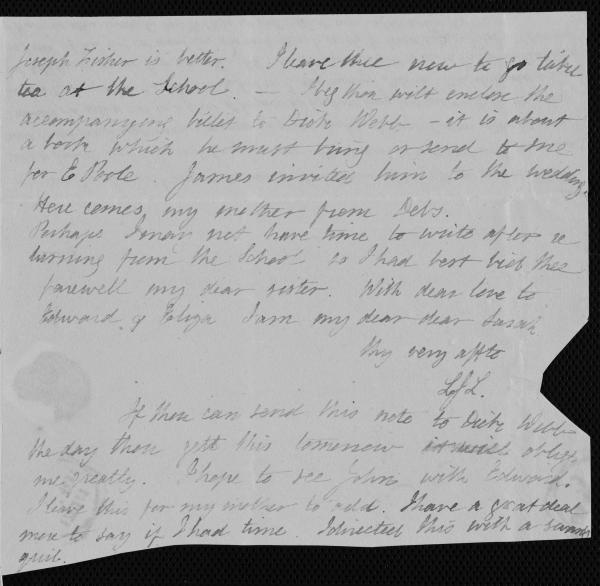 Joseph Fisher is better. I leave thee now to go take
tea at the School. — I beg thou wilt enclose the
accompanying billet to Dick Webb - it is about
a book which he must bring or send to me
for E Poole. James invited him to the wedding.
Here comes my mother from Deb's.
Perhaps I may not have time to write after re
turning from the School so I had best bid thee
farewell my dear sister. With dear love to
Edward & Eliza I am my dear dear Sarah
thy very affte
L J L.
If thou can send this note to Dick Webb
the day thou gett this tomorrow it will oblige
me greatly. I hope to see John with Edward.
I leave this for my mother to add. I have a great deal
more to say if I had time. I directed this with a swan
quil.